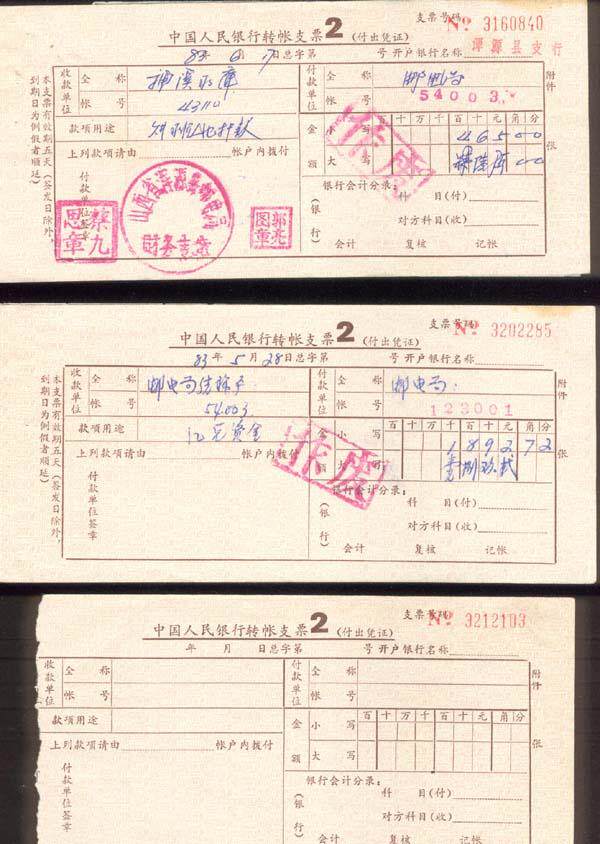 支票号码 № 3160840
中国人民银行转帐支票2(付出凭证)
83年6月 日总字第 号开户银行名称 浑源县支行
收款单位 全称 付款单位 全称 邮电局
帐号 43110 帐号 54003
款项用途
金额 小写 百十万千百十元角分
46500
上列款项请由 帐户内拨付
大写
付款单位签章
银行会计分录:
科 目(付)
对方科目(收)
(银行)
会计 复核 记帐
附件 张
本支票有效期五天(签发日除外,
到期日为例假者顺延)
作废
山西省浑源县邮电局
财务专章
蔡九恩章
郭亮图章
支票号码 № 3202285
中国人民银行转帐支票2(付出凭证)
83年5月28日总字第 号开户银行名称
收款单位 全称 邮电局 付款单位 全称 邮电局
帐号 54003 帐号 123001
款项用途 汇兑资金
金额 小写 百十万千百十元角分
189272
上列款项请由 帐户内拨付
大写
付款单位签章
银行会计分录:
科 目(付)
对方科目(收)
(银行)
会计 复核 记帐
附件 张
本支票有效期五天(签发日除外,
到期日为例假者顺延)
作废
支票号码 № 3212103
中国人民银行转帐支票2(付出凭证)
年 月 日总字第 号开户银行名称
收款单位 全称 付款单位 全称
帐号 帐号
款项用途
金额 小写 百十万千百十元角分
上列款项请由 帐户内拨付
大写
付款单位签章
银行会计分录:
科 目(付)
对方科目(收)
(银行
会计 复核 记帐
附件 张